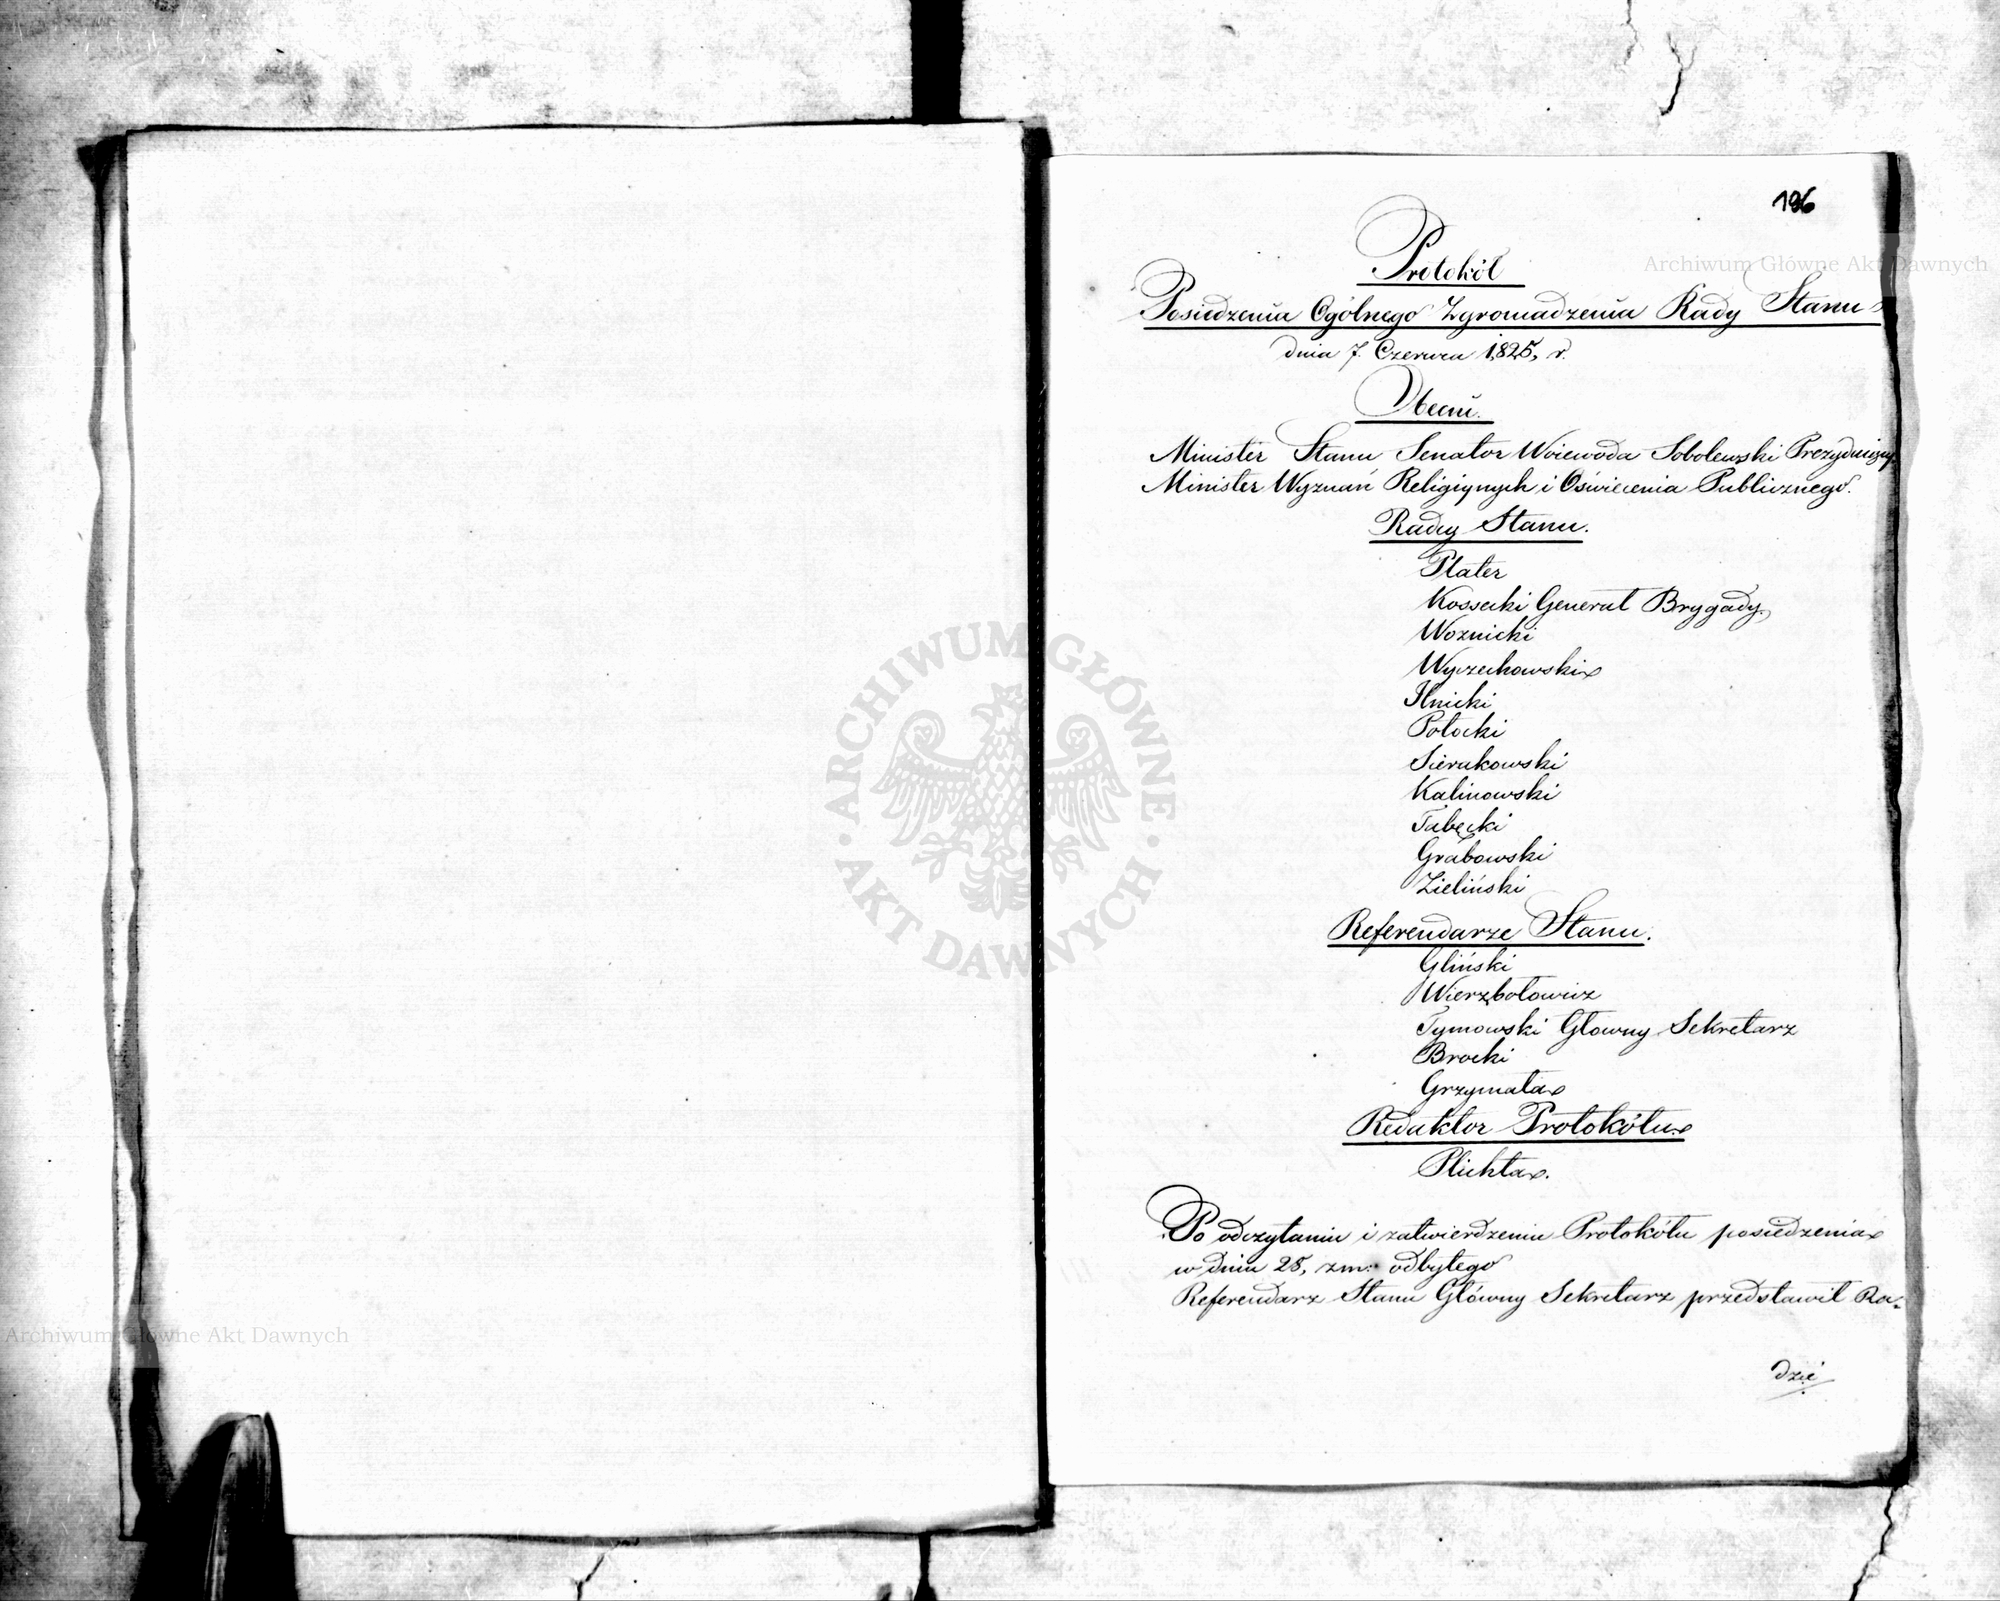 196
Protokół
Posiedzenia Ogólnego Zgromadzenia Rady Stanu
dnia 7. Czerwca 1825, r.
Obecni.
Minister Stanu Senator Woiewoda Sobolewski Prezyduiący
Minister Wyznań Religiynych i Oświecenia Publicznego.
Radcy Stanu.
Plater
Kossecki Generał Brygady.
Woznicki
Wyczechowski
Ilnicki
Potocki
Sierakowski
Kalinowski
Tabęcki
Grabowski
Zieliński
Referendarze Stanu.
Gliński
Wierzbołowicz
Tymowski Głowny Sekretarz
Brocki
Grzymała
Redaktor Protokółu
Plichta.
Po odczytaniu i zatwierdzeniu Protokółu posiedzenia
w dniu 28, zm: odbytego
Referendarz Stanu Główny Sekretarz przedstawił Ra-
dzie
Archiwum Główne Akt Dawnych
Archiwum Główne Akt Dawnych
ARCHIWUM GŁÓWNE · AKT DAWNYCH ·